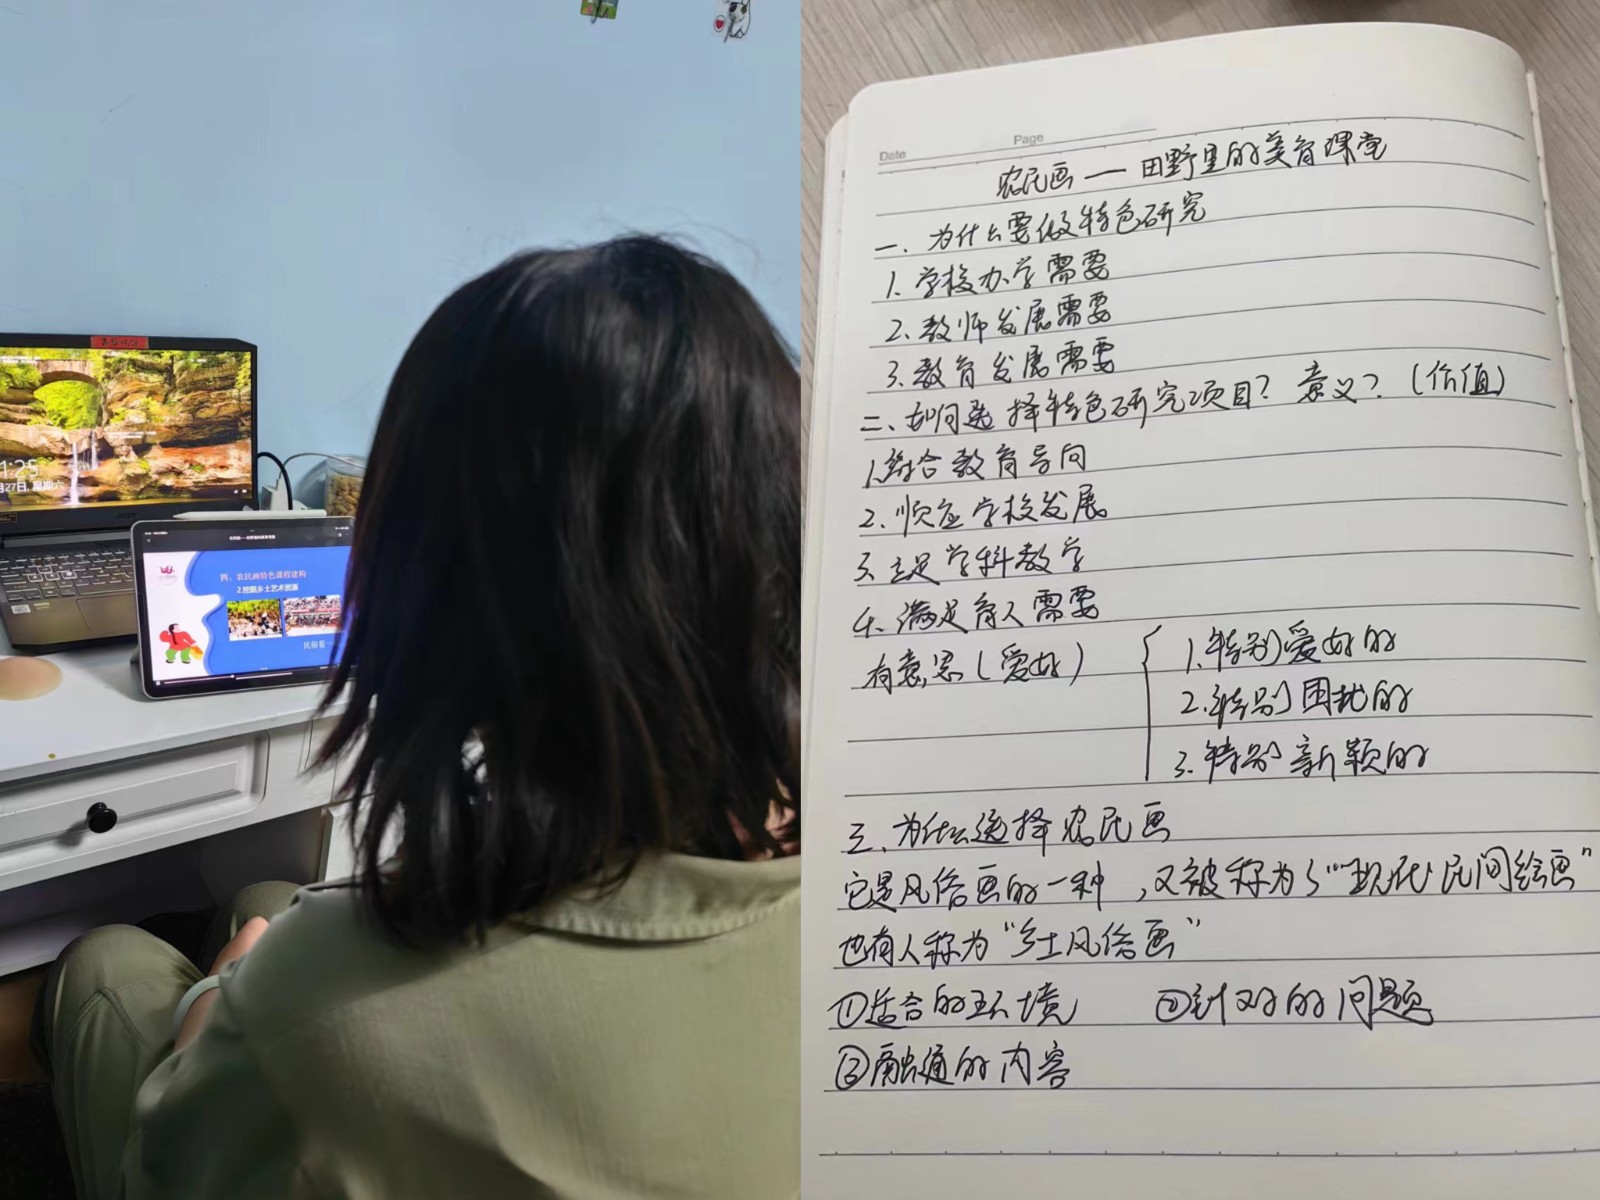 1:25
月27日, 星期六
acer
四、农民画特色课程建构
2.挖掘乡土艺术资源
民俗看一
Date
Page
农民画——田野里的美育课堂
一、为什么要做特色研究
1、学校办学需要
2、教师发展需要
3、教育发展需要
二、如何选择特色研究项目？意义？(价值)
1、结合教育导向
2、顺应学校发展
3、立足学科教学
4、满足育人需要
有意思(爱好)
1.特别爱好的
2.特别困扰的
3.特别新颖的
三、为什么选择农民画
它是风俗画的一种，又被称为了“现代民间绘画”
也有人称为“乡土风俗画”
①适合的环境 ②针对的问题
③融通的内容